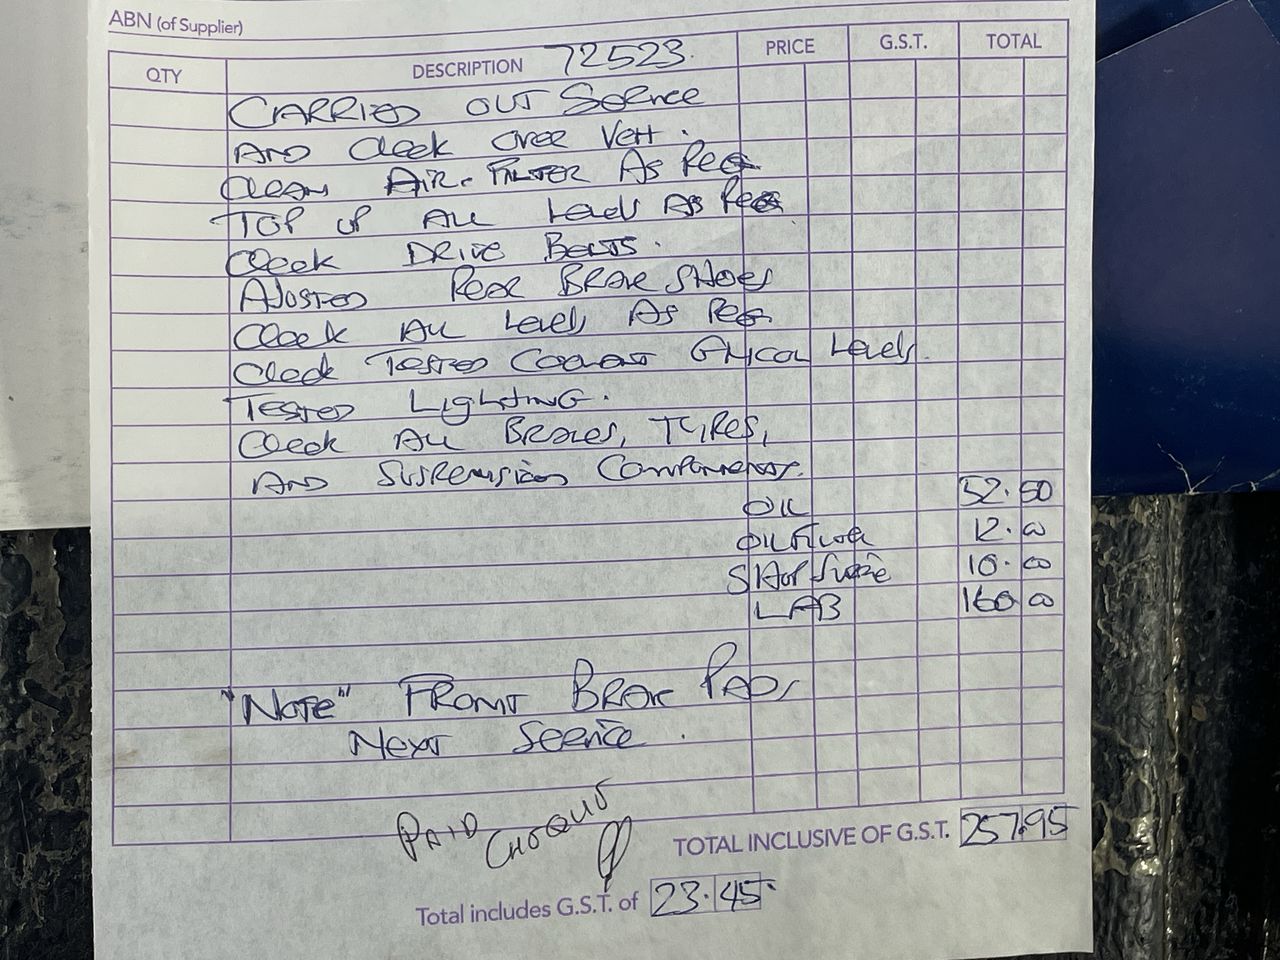 ABN (of Supplier)
QTY DESCRIPTION 72523. PRICE G.S.T. TOTAL
CARRIED OUT Service
AND Check Over VeH.
Clean AIR-FILTER AS Req
TOP UP ALL Levels AS Req
Check DRIVE BELTS.
AJUSTED Rear BRAKE SHOES
Check ALL Levels AS Req.
Check TESTED Coolant GLYCOL Levels.
TESTED LIGHTING.
Check ALL BRAKES, TYRES,
AND SUSPENSION Components.
OIL 52.50
OIL Filter 12.00
SHOP Supplie 10.00
LAB 160.00
"NOTE" FRONT BRAKE PADS
NEXT Service.
PAID CHEQUE
TOTAL INCLUSIVE OF G.S.T. 257.95
Total includes G.S.T. of 23.45